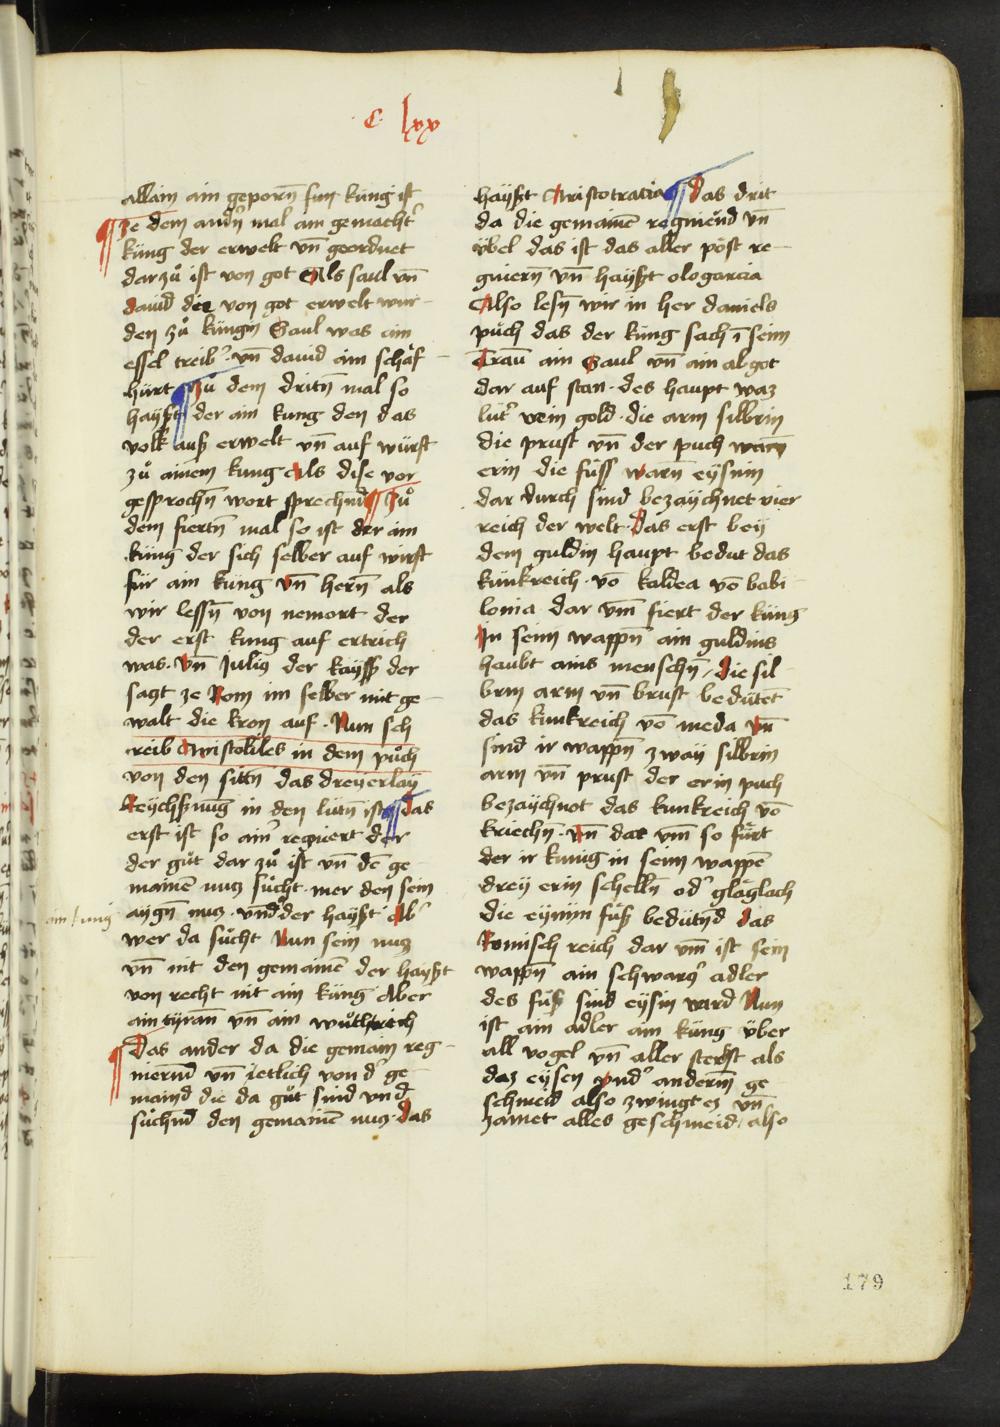 C lxx
allain ain geporñ sun kung ist
¶ Ze dem andñ mal ain gemachtʼ
küng der erwelt vñ geordnet
darzuͦ ist von got Als saul vñ
dauid die von got erwelt wur
den zuͦ küngñ Saul was ain
essel treibʼ vñ dauid ain schaͤf
hürt ¶ Zuͦ dem dritñ mal so
hayßt der ain kung den das
volk auß erwelt vñ auf würft
zuͦ ainem kung Als dise vor
gesprochñ wort sprechnd ¶ Zuͦ
dem fiertñ mal so ist der ain
küng der sich selber auf wirft
für ain kung vñ herñ als
wir lessñ von nemort der
der erst kung auf ertrich
was. Vñ Julius der kayß der
sagt ze Rom im selber mit ge
walt die kron auf. Nun sch
reib Aristotiles in dem puͦch
von den sittñ das dreyerlay
Reychßnug in den lütñ ist ¶ das
erst ist so ainʼ reguert der
der guͦt dar zuͦ ist vñ dē ge
mainē nucz suͦcht mer den sein
aygñ nucz. vnd der hayßt
ain kung
Abʼ
wer da suͦcht Nun sein nucz
vñ nit den gemainē der hayßt
von recht nit ain küng Aber
ain tyrañ vñ ain wuͦthrich
¶ Das ander da die gemain reg
niernd vñ ietlich von dʼ ge
maind die da guͦt sind vnd
suͦchnd den gemainē nucz. das
hayßt Aristotratia ¶ Das drit
da die gemainē regniend vñ
übel das ist das aller poͤst re
gnierñ vñ hayßt ologarcia
Also lesñ wir in her daniels
puͦch das der küng sach ī seim
Traū ain Saul vñ ain abgot
dar auf stan. des haupt waz
lutʼ vein gold. die arm silbrin
die prust vñ der puch warñ
erin die fuͤss warñ eysnin
dar durch sind bezaychnet vier
reich der welt. Das erst bey
dem guldin haupt bedut das
künkreich vō kaldea vō babi
lonia dar vm̄ fiert der küng
In seim wappñ ain guldins
haubt ains menschñ / die sil
brin arm vñ brust bedütet
das kunkreich vō meda vñ
sind ir wappñ zway silbrin
arm vñ prust der erin puch
bezaychnot das kunkreich vō
kriechñ. vñ dar vm̄ so fuͤrt
der ir kunig in seim wappē
drey erin schellñ odʼ glaͤglach
die eynyn fuͤß bedütnd das
Romisch reich dar vm̄ ist sein
wappñ ain schwarczʼ adler
des fuͤß sind eysin ward Nun
ist ain adler ain küng über
all vogel vñ aller sterkst als
daz eysen vndʼ anderm̄ ge
schmeid also zwingt ez vñ
zamet alles geschmeid / also
179